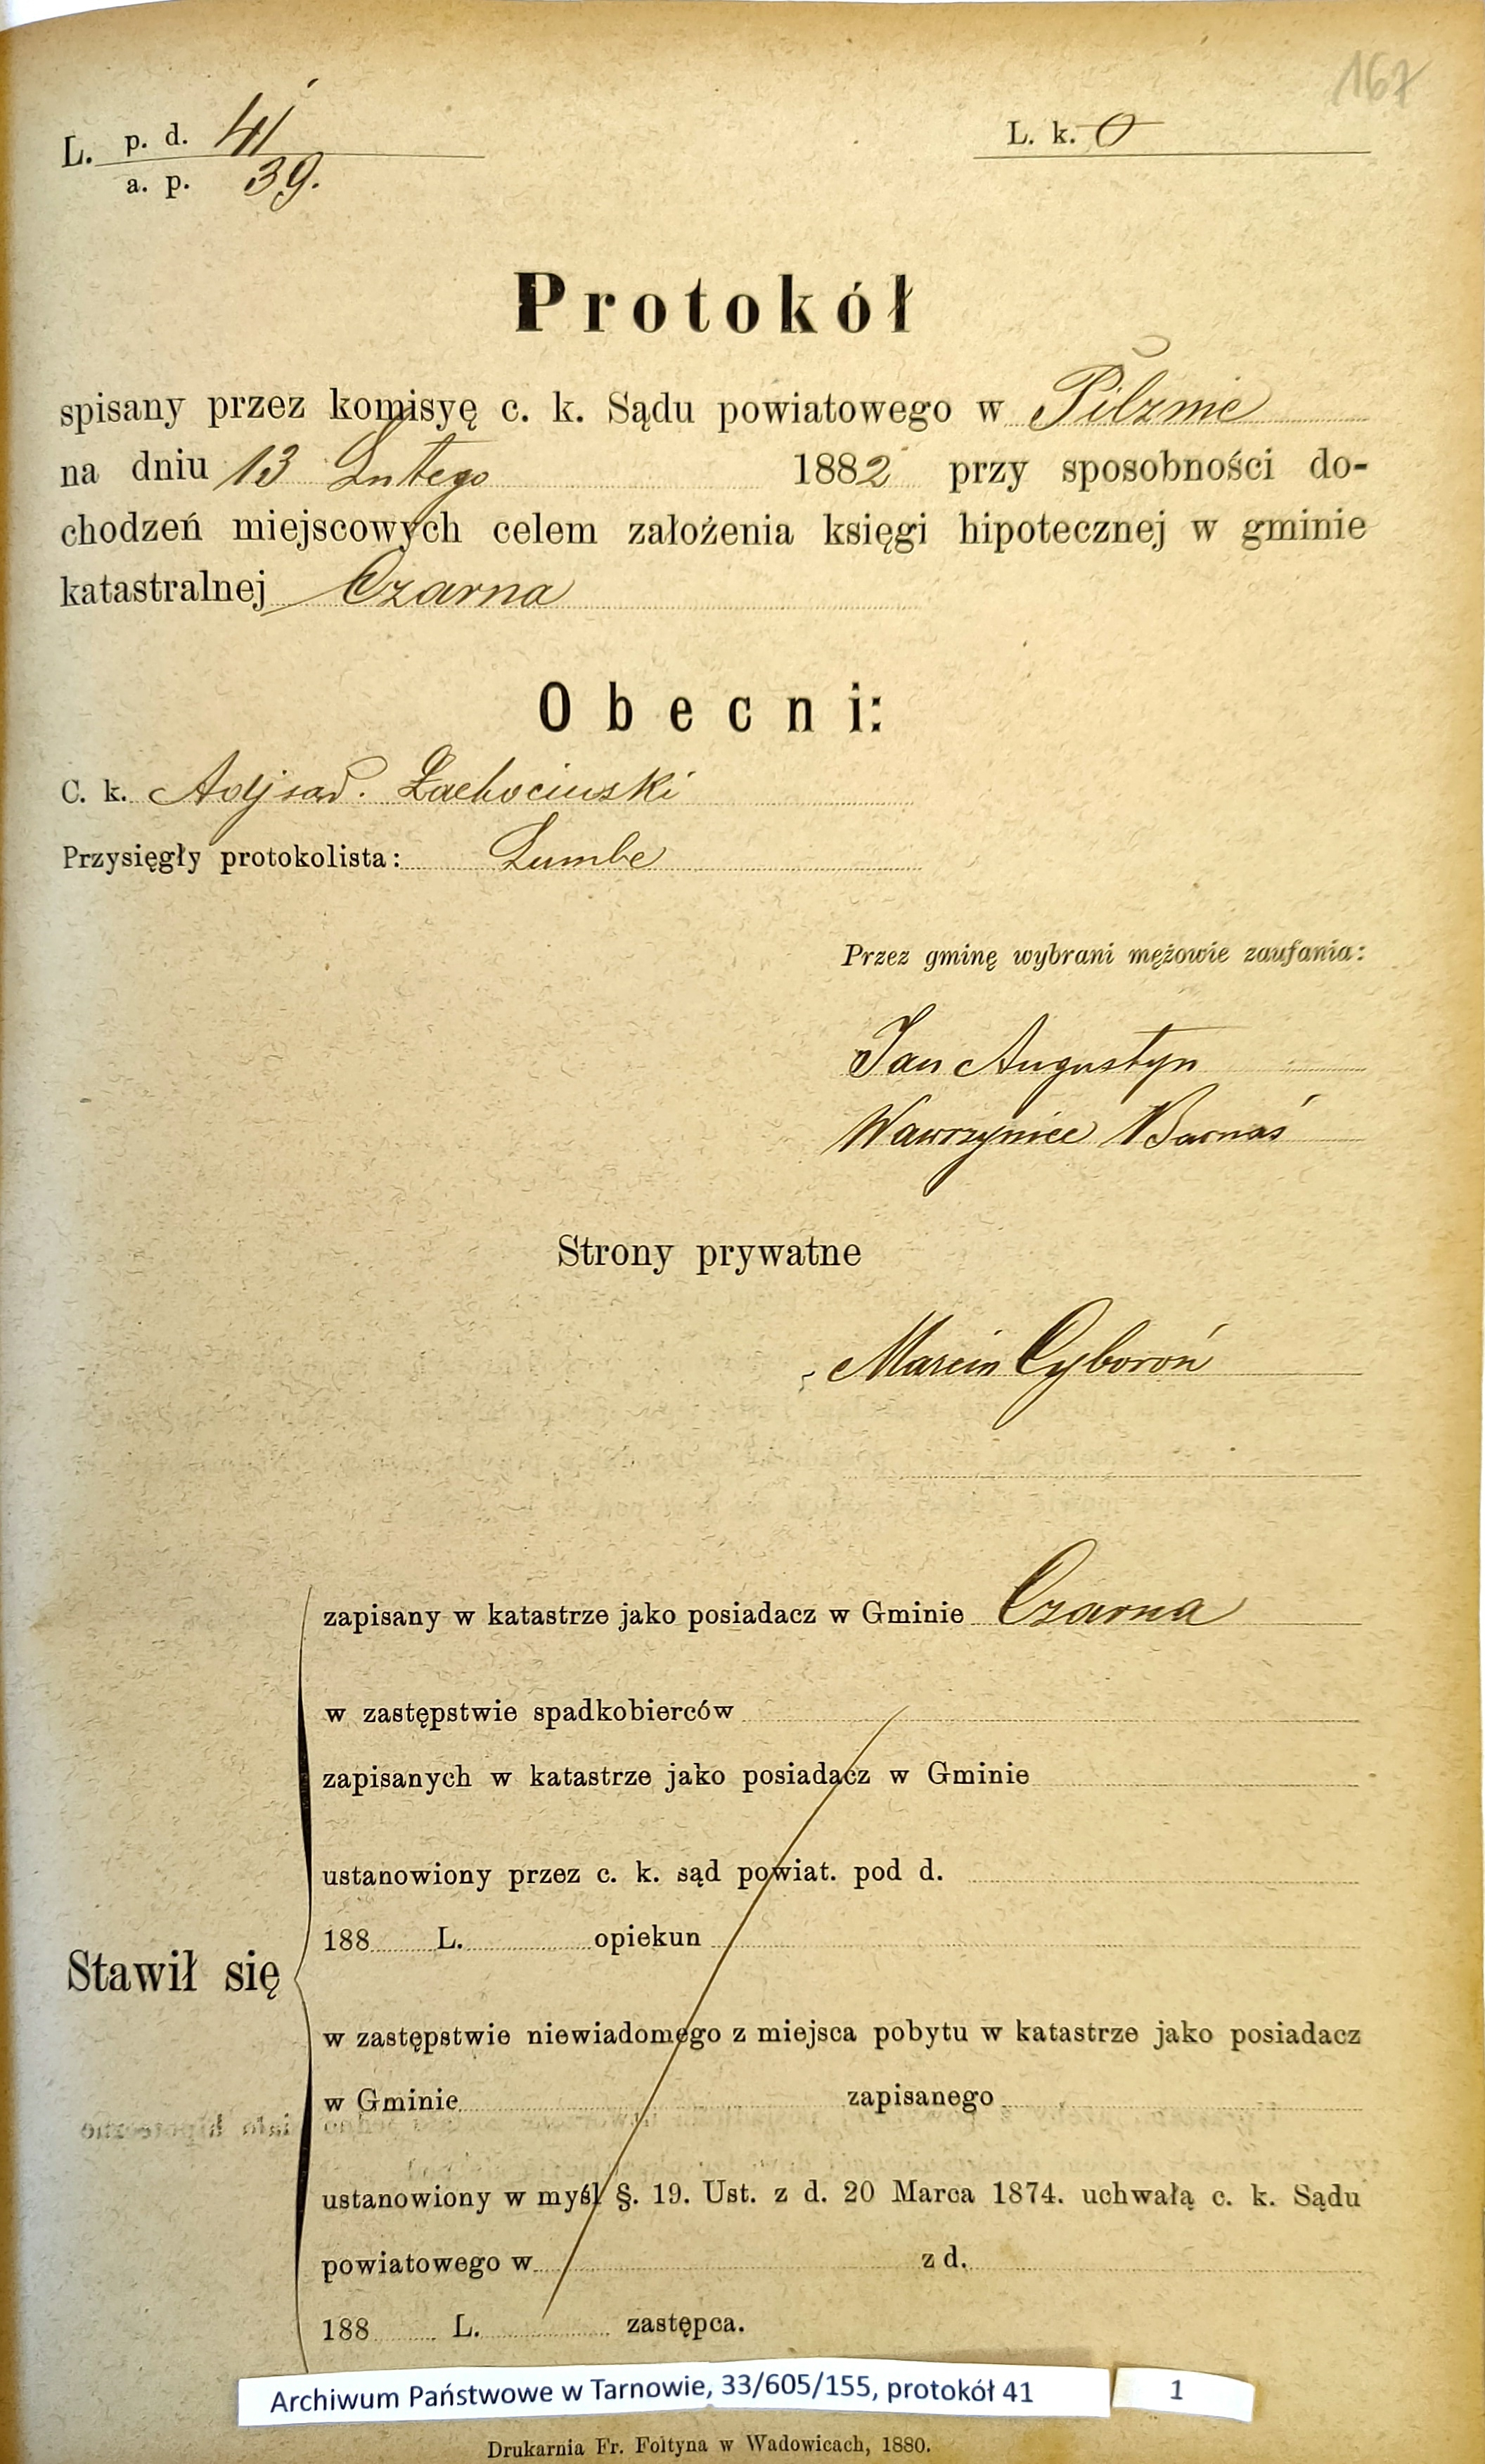 167
L. p. d. 41
a. p. 39.
L. k. 0
Protokół
spisany przez komisyę c. k. Sądu powiatowego w Pilznie
na dniu 13 Lutego 1882 przy sposobności do-
chodzeń miejscowych celem założenia księgi hipotecznej w gminie
katastralnej Czarna
Obecni:
C. k. Adj sąd. Żachociński
Przysięgły protokolista: Lumbe
Przez gminę wybrani mężowie zaufania:
Jan Augustyn
Wawrzyniec Barnaś
Strony prywatne
Marcin Cyboroń
zapisany w katastrze jako posiadacz w Gminie Czarna
w zastępstwie spadkobierców
zapisanych w katastrze jako posiadacz w Gminie
ustanowiony przez c. k. sąd powiat. pod d.
188 L. opiekun
Stawił się
w zastępstwie niewiadomego z miejsca pobytu w katastrze jako posiadacz
w Gminie zapisanego
ustanowiony w myśl §. 19. Ust. z d. 20 Marca 1874. uchwałą c. k. Sądu
powiatowego w z d.
188 L. zastępca.
Archiwum Państwowe w Tarnowie, 33/605/155, protokół 41 1
Drukarnia Fr. Foltyna w Wadowicach, 1880.